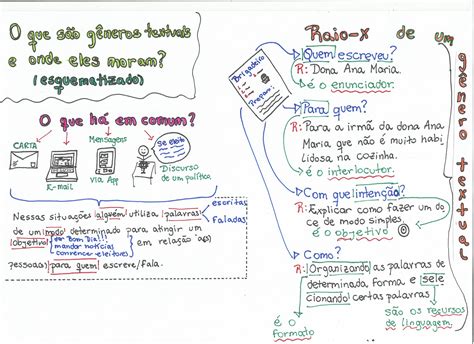 O que são gêneros textuais
e onde eles moram?
(esquematizado)
O que há em comum?
CARTA
E-mail
Mensagens
via App
Se eleito
Discurso
de um político.
Nessas situações alguém utiliza palavras
escritas
Faladas
de um modo determinado para atingir um
objetivo
dar Bom Dia!!!
mandar notícias
convencer eleitores
em relação a(s)
pessoa(s) para quem escreve/fala.
Raio-X de um
gênero textual
Brigadeiro
Preparo:
Quem escreveu?
R: Dona Ana Maria.
é o enunciador.
Para quem?
R: Para a irmã da dona Ana
Maria que não é muito habi
lidosa na cozinha.
é o interlocutor.
Com que intenção?
R: Explicar como fazer um do
ce de modo simples.
é o objetivo
Como?
R: Organizando as palavras de
determinada forma e sele
cionando certas palavras
é o
formato
são os recursos
de linguagem.